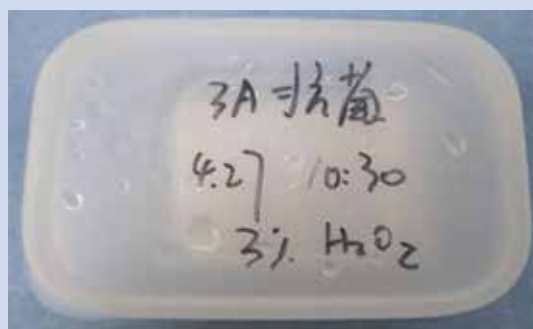 3A抗菌
4.27 10:30
3% H2O2